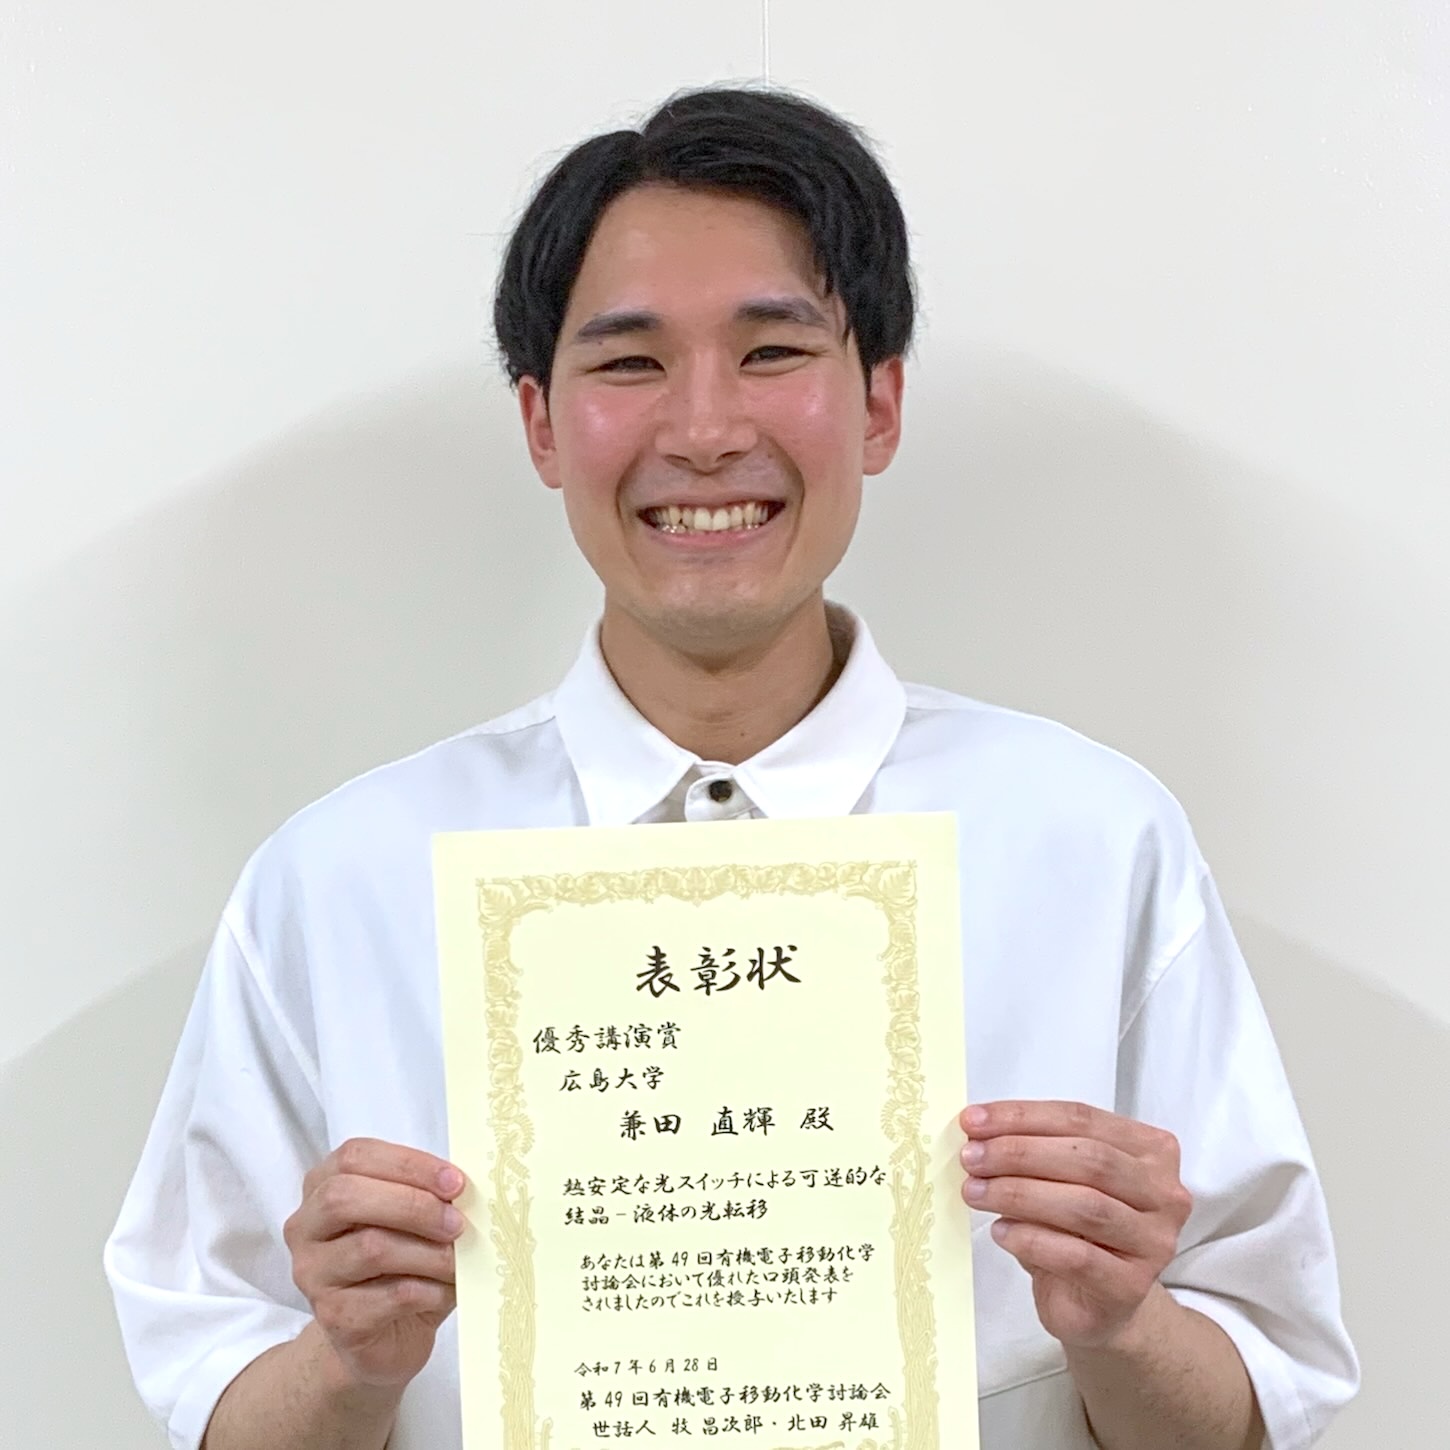 表彰状
優秀講演賞
広島大学
兼田 直輝 殿
熱安定な光スイッチによる可逆的な
結晶－液体の光転移
あなたは第 49 回有機電子移動化学
討論会において優れた口頭発表を
されましたのでこれを授与いたします
令和 7 年 6 月 28 日
第 49 回有機電子移動化学討論会
世話人 牧 昌次郎・北田 昇雄